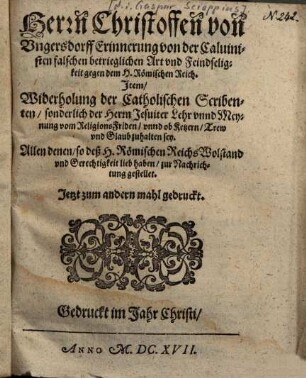 [i. e. Caspar Scioppius.]
N. 242.
Herrñ Christoffen von
Vngersdorff Erinnerung von der Caluini-
sten falschen betrieglichen Art vnd Feindselig-
keit gegen dem H. Römischen Reich.
Item/
Widerholung der Catholischen Scriben-
ten/ sonderlich der Herrn Jesuiter Lehr vnnd Mey-
nung vom ReligionsFriden/ vnnd ob Ketzern/ Trew
vnd Glaub zuhalten sey.
Allen denen/ so deß H. Römischen Reichs Wolstand
vnd Gerechtigkeit lieb haben/ zur Nachrich-
tung gestellet.
Jetzt zum andern mahl gedruckt.
Gedruckt im Jahr Christi/
ANNO M. DC. XVII.